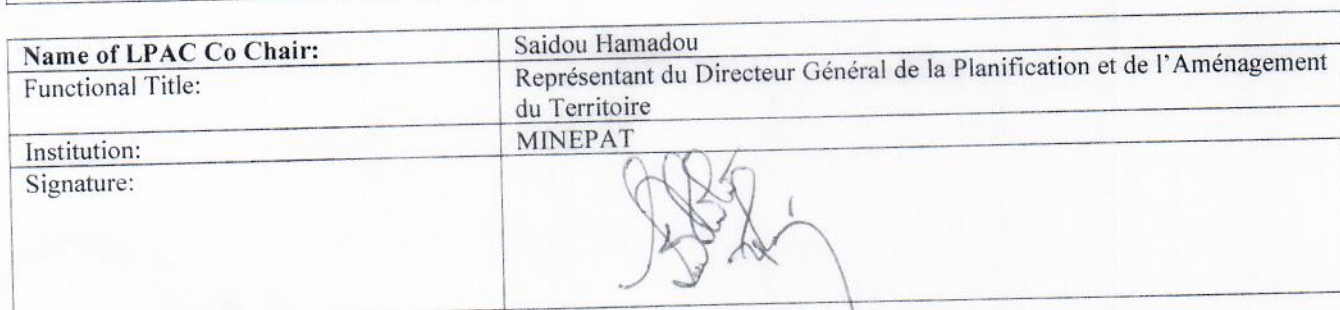 Name of LPAC Co Chair: Saidou Hamadou
Functional Title: Représentant du Directeur Général de la Planification et de l'Aménagement
du Territoire
Institution: MINEPAT
Signature: